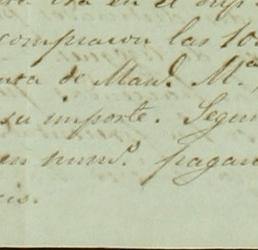 era en el
compraron las 10
de Man.l M.a
su importe. Segun
en num.o pagan
cis.